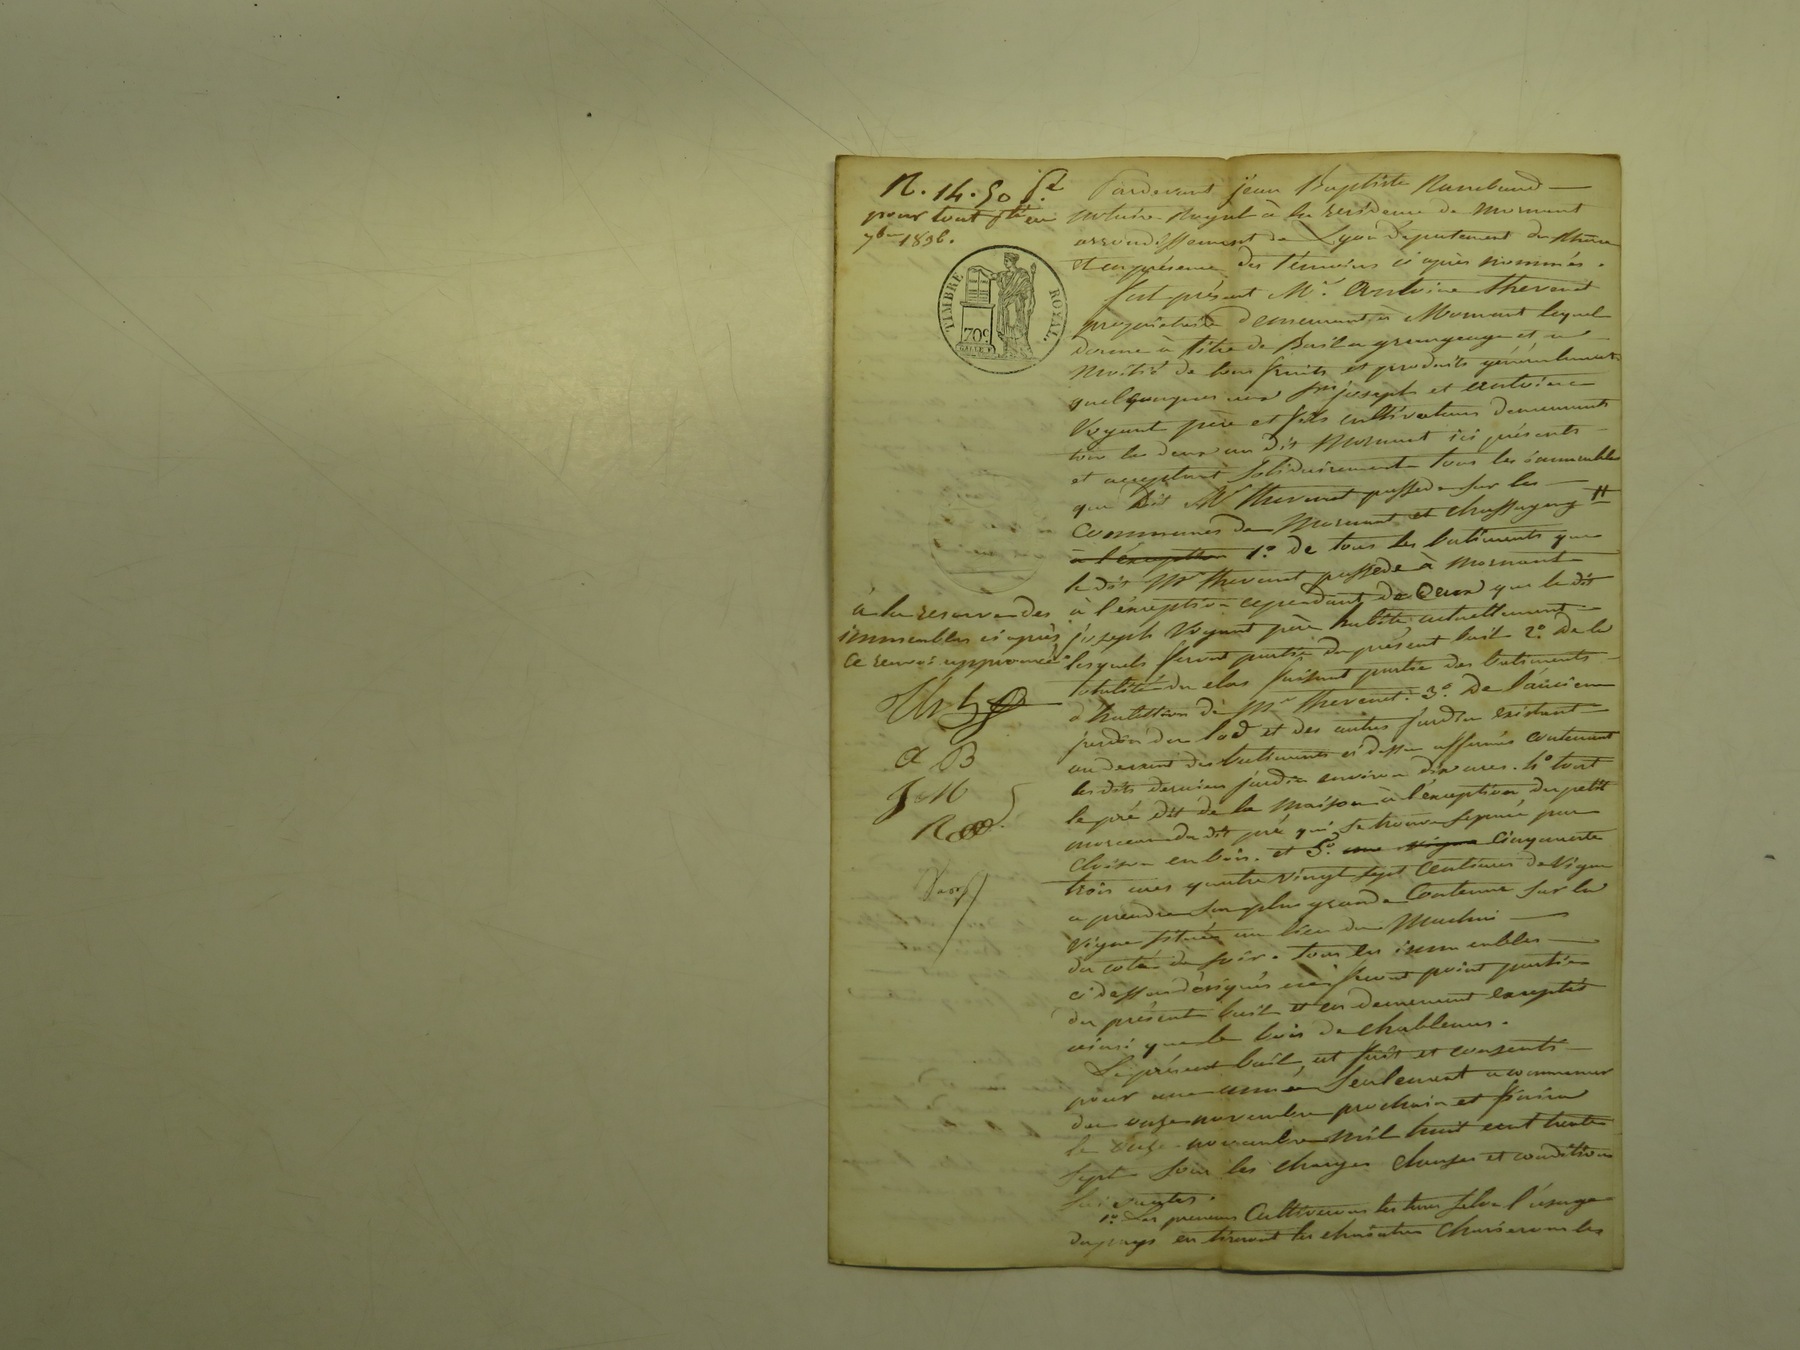 N. 14. 50 f.c
pour tout
7bre 1836.
TIMBRE ROYAL
70c
à la reserve des
immeubles ci après
ce renvoi approuvé
a B
Pardevant jean Baptiste Rambaud
notaire Royal à la residence de mornant
arrondissement de Lyon département du Rhône
et en présence des témoins ci après nommés.
fut présent Mr. Antoine thevenet
propriétaire demeurant à Mornant lequel
donne à titre de Bail a grangeage et a
moitié de tous fruits et produits généralement
quelquonques aux Srs joseph et antoine
Voyant père et fils cultivateurs demeurants
tous les deux au dit Mornant ici présents
et acceptant solidairement tous les immeubles
que dit Mr thevenet possede sur les
communes de Mornant et chassagny #
à l'éxception 1º. de tous les batiments que
le dit Mr thevenet possede à mornant
à l'éxception cependant de ceux que le dit
joseph Voyant père habite actuellement
lesquels feront partie du présent bail 2º. de la
totalité du clos faisant partie des batiments
d'habittion de Mr thevenet. 3º. de l'ancien
jardin du sod et des autres jardin existant
au devant des batiments ci dessu affermés contenant
les dits derniers jardin environ dix ares. 4º tout
le pré dit de la maison à l'éxception du petit
morceau du dit pré qui se trouve séparé par
cloison en bois. et 5º. une vigne cinquante
trois ares quatre vingt sept centiares de vigne
a prendre sur plus grande contenue sur la
vigne située au lieu du
du coté de soir. tous les immeubles
ci dessus désignés ne feront point partie
du présent bail et en demeurent exceptés
ainsi que le bois de chablenas.
Le présent bail est fait et consenti
pour une année seulement a commencer
du onze novembre prochain et finira
le onze novembre mil huit cent trente
sept sous les charges clauses et conditions
suivantes.
1º. Les preneurs cultiveront les terres selon l'usage
du pays en tireront les les